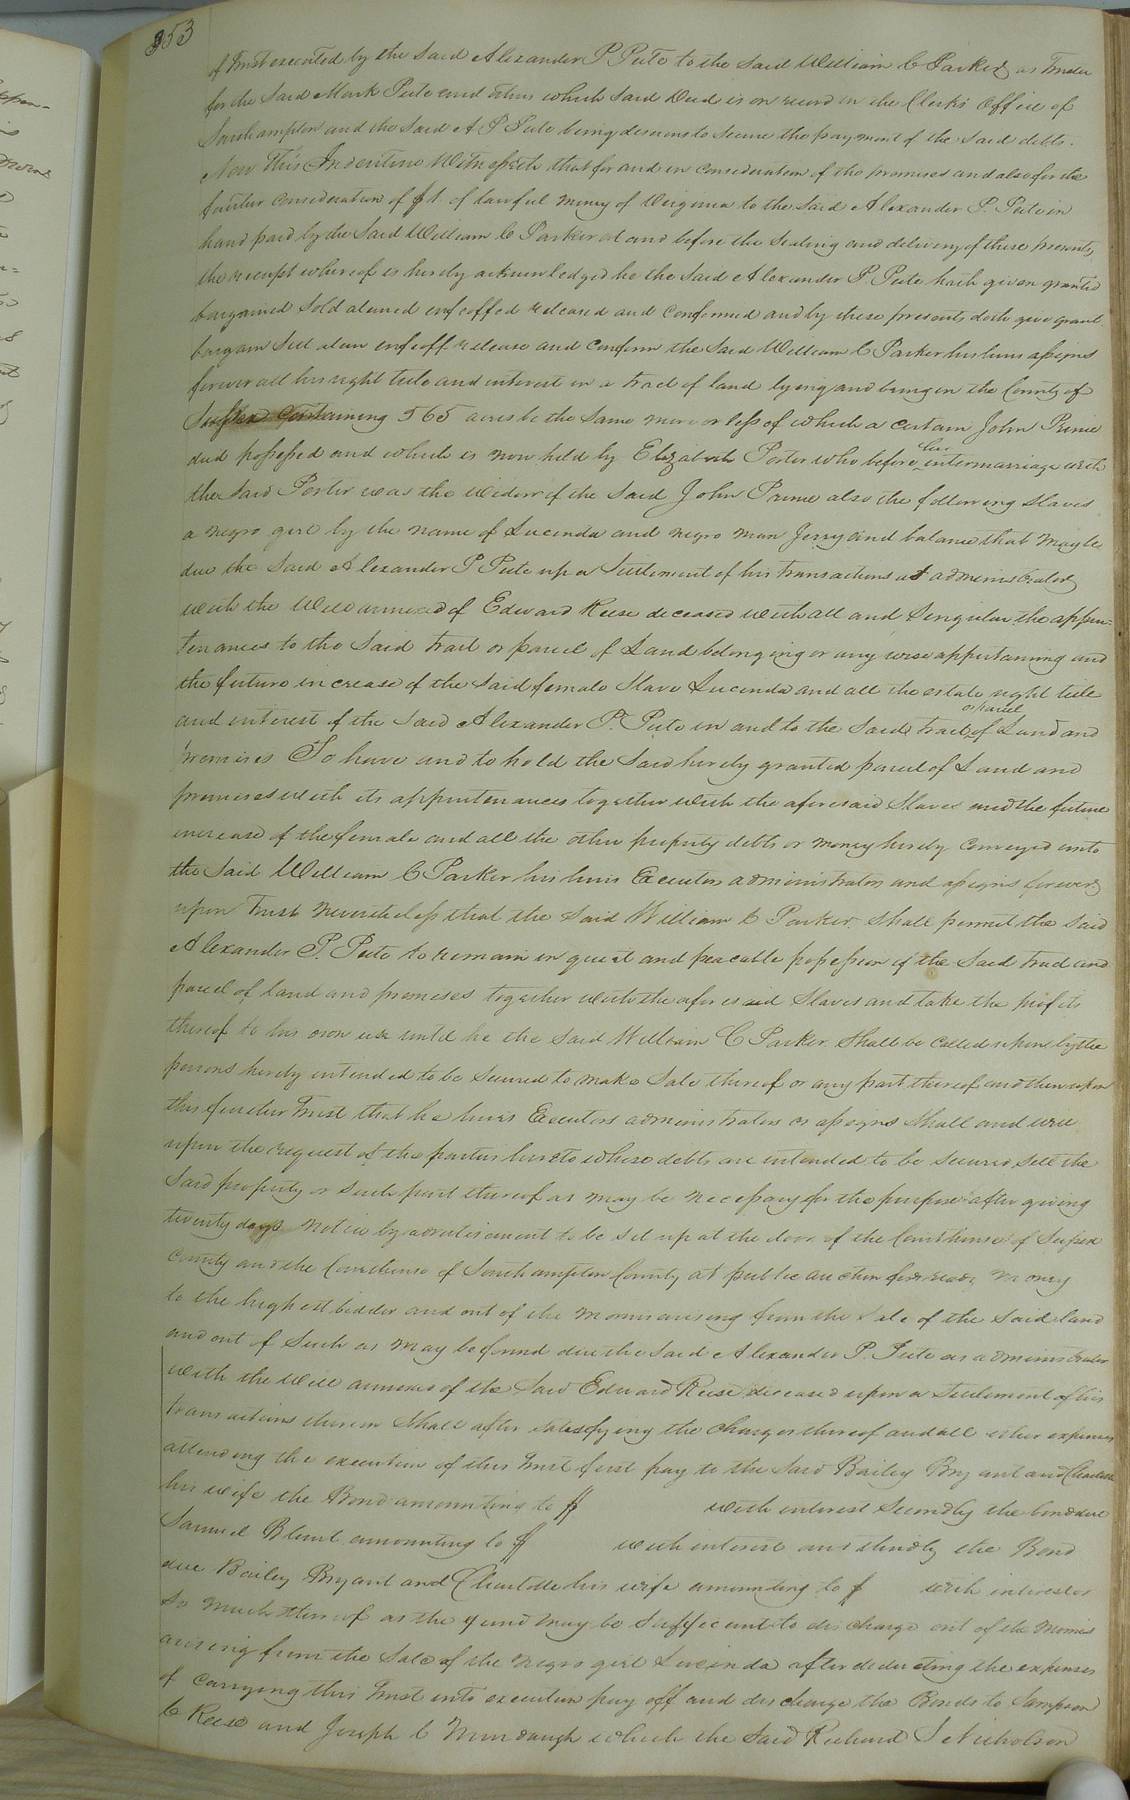 353
of Trust executed by the said Alexander P Peete to the said William C Parker as Trustee
for the said Mark Peete and others which said Deed is on record in the Clerks Office of
Southampton and the said A P Peete being desirous to secure the payment of the said debts.
Now this Indenture Witnesseth that for and in consideration of the premises and also for the
further consideration of $1. of lawful money of Virginia to the said Alexander P. Peete in
hand paid by the said William C Parker at and before the sealing and delivery of these presents,
the receipt whereof is hereby acknowledged he the said Alexander P. Peete hath given granted
bargained sold aliened enfeoffed released and confirmed and by these presents doth give grant
bargain sell alien enfeoff release and confirm the said William C Parker his heirs assigns
forever all his right title and interest in a tract of land lying and being in the County of
Sussex containing 565 acres be the same more or less of which a certain John Prime
died possessed and which is now held by Elizabeth Porter who before her intermarriage with
the said Porter was the widow of the said John Prime also the following slaves
a negro girl by the name of Lucinda and negro man Jerry and balance that may be
due the said Alexander P Peete up a Settlement of his transactions as administrator
with the Will annexed of Edward Reese deceased with all and singular the appur=
tenances to the said tract or parcel of Land belonging or any wise appertaining and
the future increase of the said female Slave Lucinda and all the estate right title
and interest of the said Alexander P. Peete in and to the said tract or parcel of Land and
premises To have and to hold the said hereby granted parcel of Land and
premises with its appurtenances together with the aforesaid Slaves and the future
increase of the female and all the other property debts or money hereby conveyed unto
the said William C Parker his heirs Executors administrators and assigns forever
upon Trust nevertheless that the said William C Parker shall permit the said
Alexander P. Peete to remain in quiet and peacable possession of the said tract and
parcel of land and premises together with the aforesaid Slaves and take the profits
thereof to his own use until he the said William C Parker shall be called upon by the
persons hereby intended to be secured to make Sale thereof or any part thereof and then upon
this further Trust that he heirs Executors administrators or assigns shall and will
upon the request of the parties hereto whose debts are intended to be secured sell the
said property or such part thereof as may be necessary for the purpose after giving
twenty days notice by advertisement to be set up at the door of the Courthouse of Sussex
County and the Courthouse of Southampton County at public auction for ready money
to the highest bidder and out of the monies arising from the sale of the said land
and out of such as may be found due the said Alexander P. Peete as administrator
with the will annexed of the said Edward Reese deceased upon a Settlement of his
transactions therein shall after satisfying the charges thereof and all other expenses
attending the execution of this Trust first pay to the said Bailey Bryant and Charlotte
his wife the Bond amounting to $ with interest Secondly the bond due
Samuel Blunt amounting to $ with interest and thirdly the Bond
due Bailey Bryant and Charlotte his wife amounting to $ with interest or
so much thereof as the fund may be sufficient to discharge out of the monies
arising from the Sale of the negro girl Lucinda after deducting the expenses
of carrying this Trust into execution pay off and discharge the Bonds to Sampson
C Reese and Joseph C Murdaugh which the said Richard S Nicholson